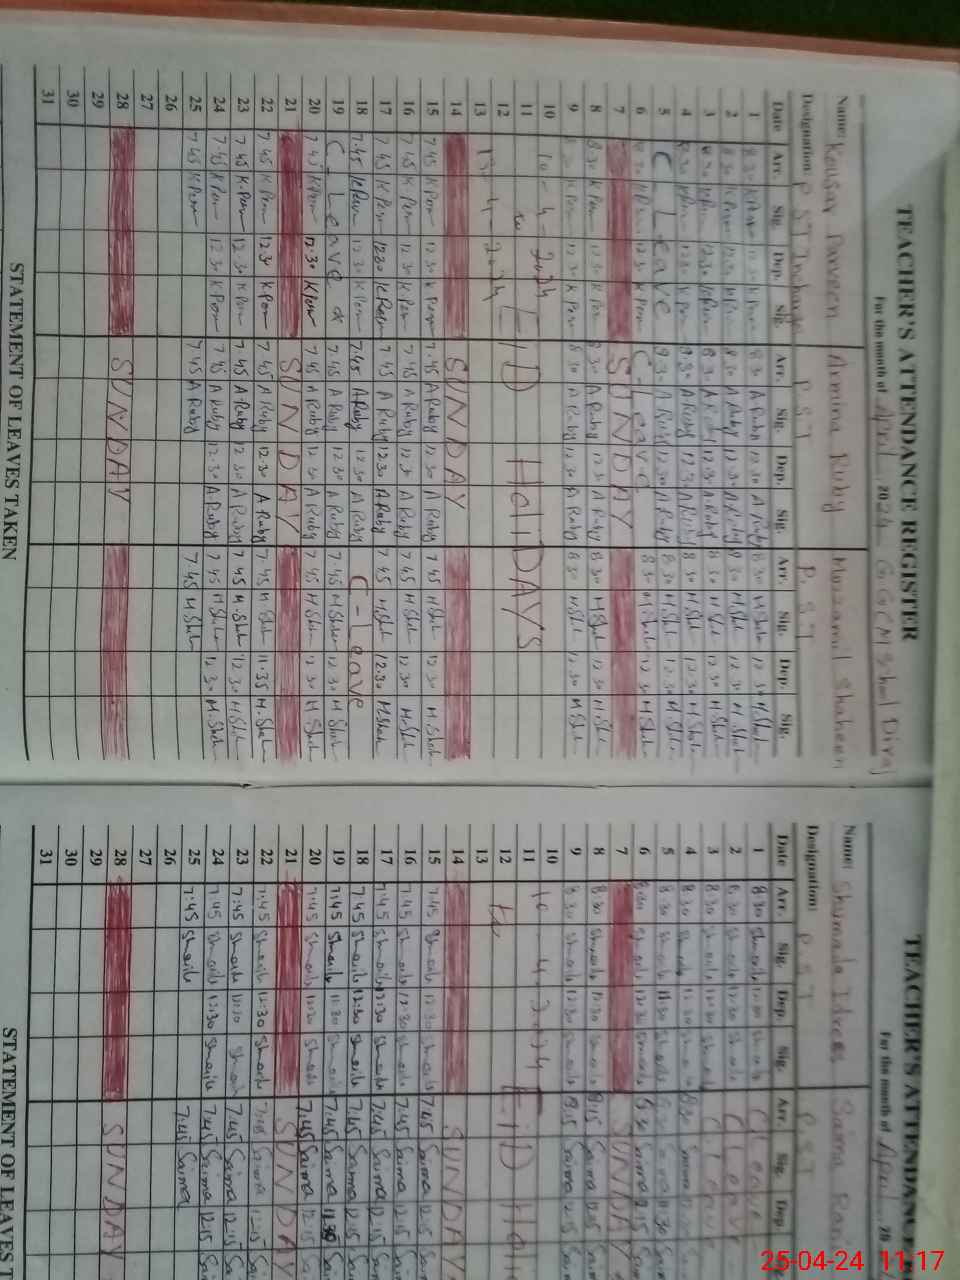 TEACHER'S ATTENDANCE REGISTER
For the month of April 2024 GGCM School Diraj
Name: Kousar Parveen Ammina Ruby Muzzamil Shaheen
Designation: P S T Incharge P S T P. S. T
Date Arr. Sig. Dep. Sig. Arr. Sig. Dep. Sig. Arr. Sig. Dep. Sig.
1 8.30 K Pew 12.30 K Pew 8.30 A Ruby 12.30 A Ruby 8.30 M.Shah 12.30 M.Shah
2 8.30 K Pew 12.30 K Pew 8.30 A Ruby 12.30 A Ruby 8.30 M.Shah 12.30 M.Shah
3 8.30 K Pew 12.30 K Pew 8.30 A Ruby 12.30 A Ruby 8.30 M.Shah 12.30 M.Shah
4 8.30 K Pew 12.30 K Pew 8.30 A Ruby 12.30 A Ruby 8.30 M.Shah 12.30 M.Shah
5 C Leave 8.30 A Ruby 12.30 A Ruby 8.30 M.Shah 12.30 M.Shah
6 8.30 K Pew 12.30 K Pew C-Leave 8.30 M.Shah 12.30 M.Shah
7 SUNDAY
8 8.30 K Pew 12.30 K Pew 8.30 A Ruby 12.30 A Ruby 8.30 M.Shah 12.30 M.Shah
9 8.30 K Pew 12.30 K Pew 8.30 A Ruby 12.30 A Ruby 8.30 M.Shah 12.30 M.Shah
10 10-4-2024
11 to EID HoliDAYS
12
13 13-4-2024
14 SUNDAY
15 7.45 K Pew 12.30 K Pew 7.45 A Ruby 12.30 A Ruby 7.45 M.Shah 12.30 M.Shah
16 7.45 K Pew 12.30 K Pew 7.45 A Ruby 12.30 A Ruby 7.45 M.Shah 12.30 M.Shah
17 7.45 K Pew 12.30 K Pew 7.45 A Ruby 12.30 A Ruby 7.45 M.Shah 12.30 M.Shah
18 7.45 K Pew 12.30 K Pew 7.45 A Ruby 12.30 A Ruby C-Leave
19 C-Leave 7.45 A Ruby 12.30 A Ruby 7.45 M.Shah 12.30 M.Shah
20 7.45 K Pew 12.30 K Pew 7.45 A Ruby 12.30 A Ruby 7.45 M.Shah 12.30 M.Shah
21 SUNDAY
22 7.45 K Pew 12.30 K Pew 7.45 A Ruby 12.30 A Ruby 7.45 M.Shah 11.35 M.Shah
23 7.45 K Pew 12.30 K Pew 7.45 A Ruby 12.30 A Ruby 7.45 M.Shah 12.30 M.Shah
24 7.45 K Pew 12.30 K Pew 7.45 A Ruby 12.30 A Ruby 7.45 M.Shah 12.30 M.Shah
25 7.45 K Pew 7.45 A Ruby 7.45 M.Shah
26
27
28 SUNDAY
29
30
31
STATEMENT OF LEAVES TAKEN
TEACHER'S ATTENDANCE
For the month of April 20
Name: Shumaila Idrees Saima
Designation: P S T P S T
Date Arr. Sig. Dep. Sig. Arr. Sig. Dep.
1 8.30 Shaila 12.30 Shaila C Leave
2 8.30 Shaila 12.30 Shaila C Leave
3 8.30 Shaila 12.30 Shaila C Leave
4 8.30 Shaila 12.30 Shaila 8.30 Saima
5 8.30 Shaila 11.30 Shaila 8.30 Saima 11.30
6 8.30 Shaila 12.30 Shaila 8.15 Saima 12.15
7 SUNDAY
8 8.30 Shaila 12.30 Shaila 8.15 Saima 12.15
9 8.30 Shaila 12.30 Shaila 8.15 Saima 12.15
10
11 10-4-2024 EiD Holi
12 to
13
14 SUNDAY
15 7:45 Shaila 12:30 Shaila 7:45 Saima 12:15
16 7:45 Shaila 12:30 Shaila 7:45 Saima 12:15
17 7:45 Shaila 12:30 Shaila 7:45 Saima 12:15
18 7:45 Shaila 12:30 Shaila 7:45 Saima 12:15
19 7:45 Shaila 11:30 Shaila 7:45 Saima 11:30
20 7:45 Shaila 12:30 Shaila 7:45 Saima 12:15
21 SUNDAY
22 7:45 Shaila 12:30 Shaila 7:45 Saima 12:15
23 7:45 Shaila 12:30 Shaila 7:45 Saima 12:15
24 7:45 Shaila 12:30 Shaila 7:45 Saima 12:15
25 7:45 Shaila 7:45 Saima
26
27
28 SUNDAY
29
30
31
STATEMENT OF LEAVES T
25-04-24 11:17